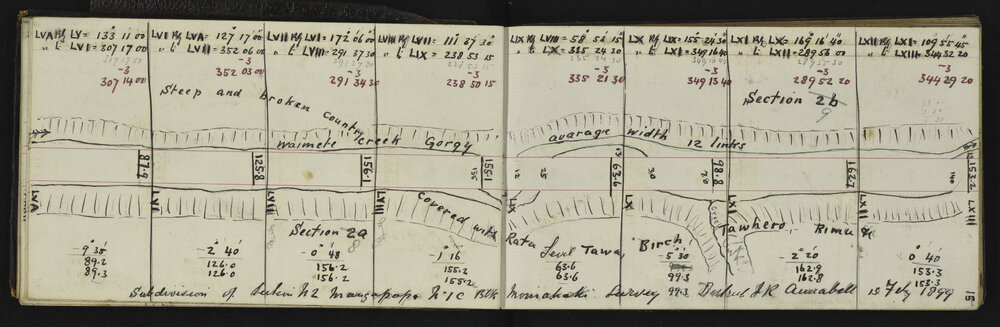 LVA Rg LV = 133 11 00
" L LVI = 307 17 00
317 17 00
-3
307 14 00
LVI Rg LVA = 127 17 00
" L LVII = 352 06 00
-3
352 03 00
LVII Rg LVI = 172 06 00
" L LVIII = 291 37 30
291 37 30
-3
291 34 30
LVIII Rg LVII = 111 37 30
" L LIX = 238 53 15
238 53 15
-3
238 50 15
LIX Rg LVIII = 58 53 15
" L LX = 335 24 30
335 24 30
-3
335 21 30
LX Rg LIX = 155 24 30
" L LXI = 349 16 40
349 16 40
-3
349 13 40
LXI Rg LX = 169 16 40
" L LXII = 289 55 00
289 55 30
-3
289 52 20
LXII Rg LXI = 109 55 45
" L LXIII = 344 32 20
-3
344 29 20
Steep and broken country
Section 2b
9
Waimete Creek Gorgy
avarage width
12 links
87.9
125.8
156.2
155.1
155
12
25
13
63.6
30
98.8
20
162.7
140
12
153.2
LVA
LVI
LVII
LVIII
LIX
LX
LXI
LXII
LXIII
Covered with
Rata Level Tawa, Birch
Tawhero, Rimu &c
Section 2a
8
-9° 30
89.2
89.3
-2° 40'
126.0
126.0
-0° 48
156.2
156.2
-1° 16
155.2
155.2
63.6
63.6
-5° 30
99.3
99.3
-2° 20'
162.9
162.8
0° 40
153.3
153.3
Subdivision of Section No 2 Mangapapa No 1C Blk Momahaki Survey District J R Annabell 15 Feby 1899
15